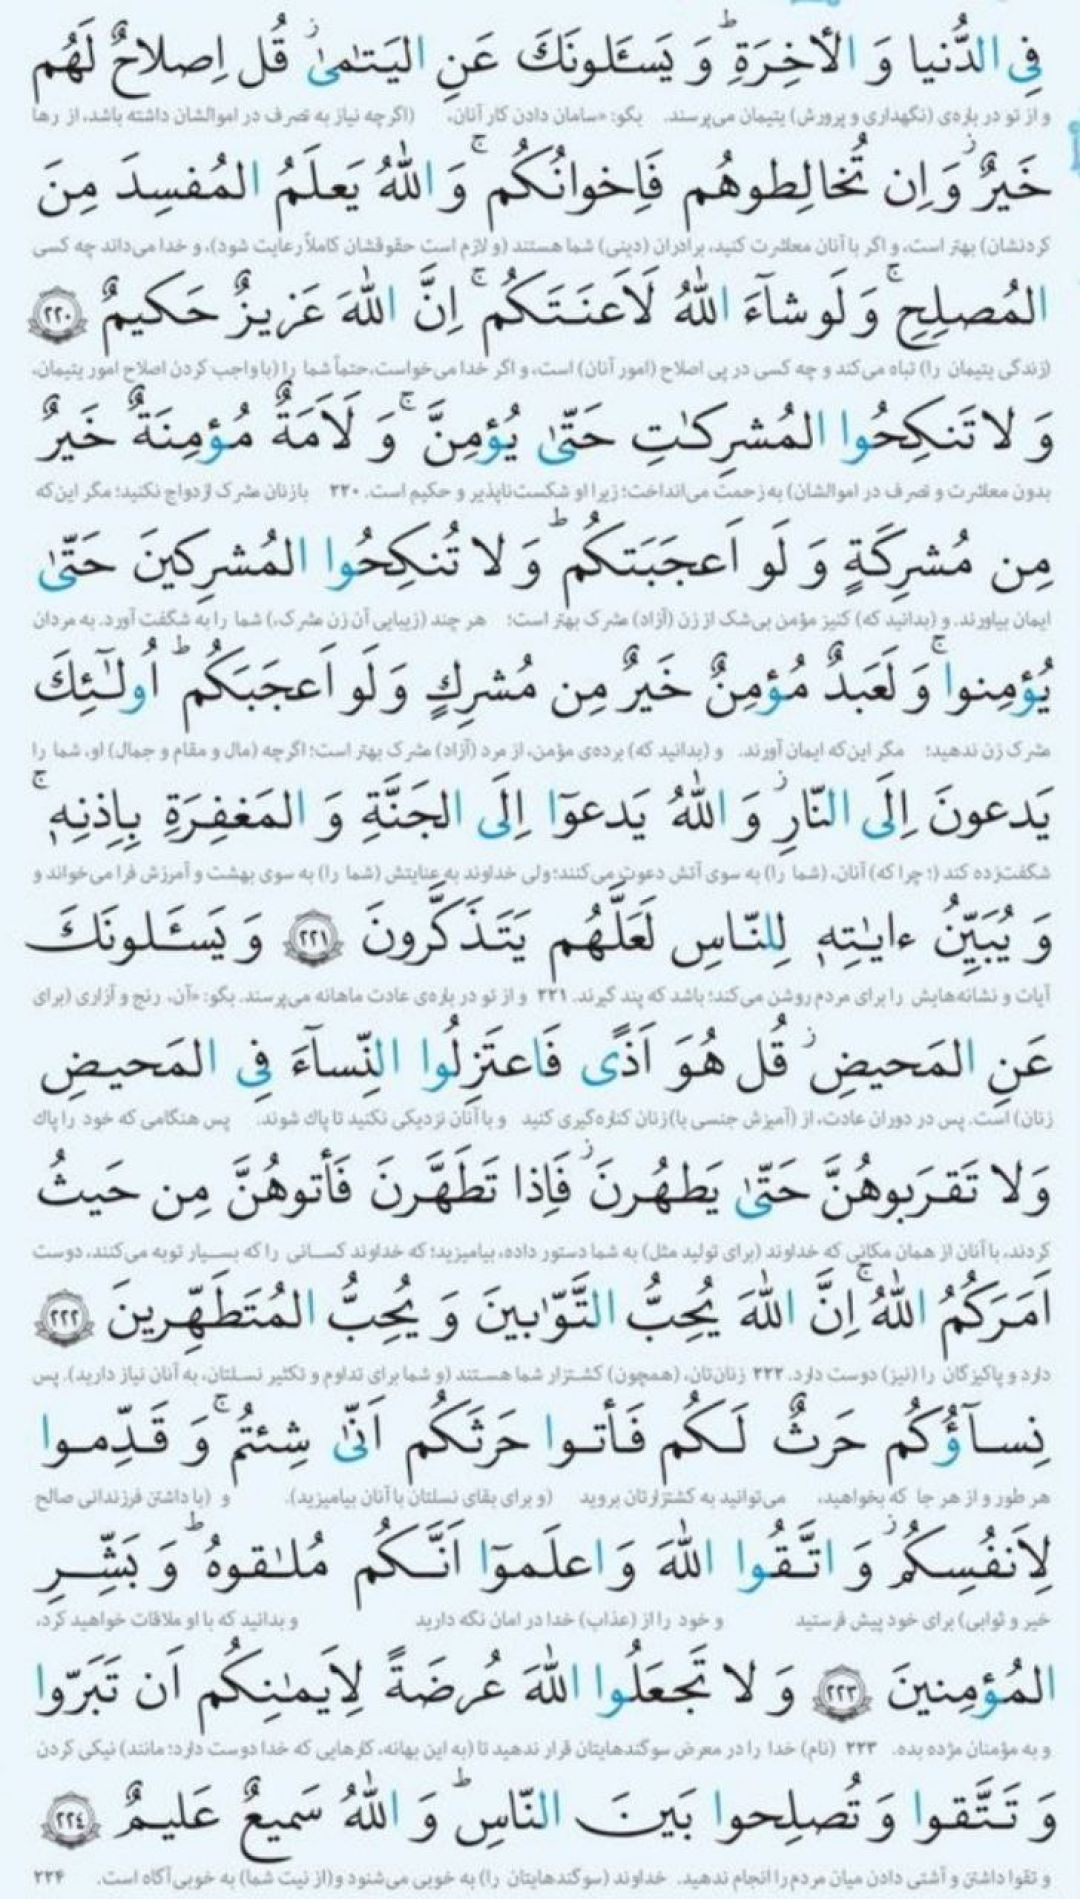 فِی الدُّنیا وَ الاٰخِرَةِ ۗ وَ یَسئَلونَکَ عَنِ الیَتـٰمىٰ ۖ قُل اِصلاحٌ لَهُم
و از تو در باره‌ی (نگهداری و پرورش) یتیمان می‌پرسند. بگو: «سامان دادن کار آنان، (اگرچه نیاز به تصرف در اموالشان داشته باشد، از رها
خَیرٌ ۖ وَ اِن تُخالِطوهُم فَاِخوانُکُم ۚ وَ اللهُ یَعلَمُ المُفسِدَ مِنَ
کردنشان) بهتر است، و اگر با آنان معاشرت کنید، برادران (دینی) شما هستند (و لازم است حقوقشان کاملاً رعایت شود)، و خدا می‌داند چه کسی
المُصلِحِ ۚ وَ لَو شآءَ اللهُ لَاَعنَتَکُم ۚ اِنَّ اللهَ عَزیزٌ حَکیمٌ ﴿۲۲۰﴾
(زندگی یتیمان را) تباه می‌کند و چه کسی در پی اصلاح (امور آنان) است، و اگر خدا می‌خواست، حتماً شما را (با واجب کردن اصلاح امور یتیمان،
وَ لا تَنکِحُوا المُشرِکـٰتِ حَتّىٰ یُؤمِنَّ ۚ وَ لَاَمَةٌ مُؤمِنَةٌ خَیرٌ
بدون معاشرت و تصرف در اموالشان) به زحمت می‌انداخت؛ زیرا او شکست‌ناپذیر و حکیم است. ۲۲۰ با زنان مشرک ازدواج نکنید؛ مگر این‌که
مِن مُشرِکَةٍ وَ لَو اَعجَبَتکُم ۗ وَ لا تُنکِحُوا المُشرِکینَ حَتّىٰ
ایمان بیاورند. و (بدانید که) کنیز مؤمن بی‌شک از زن (آزاد) مشرک بهتر است؛ هر چند (زیبایی آن زن مشرک،) شما را به شگفت آورد. به مردان
یُؤمِنوا ۚ وَ لَعَبدٌ مُؤمِنٌ خَیرٌ مِن مُشرِکٍ وَ لَو اَعجَبَکُم ۗ اُولـٰٓئِکَ
مشرک زن ندهید؛ مگر این‌که ایمان آورند. و (بدانید که) برده‌ی مؤمن، از مرد (آزاد) مشرک بهتر است؛ اگرچه (مال و مقام و جمال) او، شما را
یَدعونَ اِلَى النّارِ ۖ وَ اللهُ یَدعوٓا اِلَى الجَنَّةِ وَ المَغفِرَةِ بِاِذنِهٖ ۚ
شگفت‌زده کند (؛ چرا که) آنان، (شما را) به سوی آتش دعوت می‌کنند؛ ولی خداوند به عنایتش (شما را) به سوی بهشت و آمرزش فرا می‌خواند و
وَ یُبَیِّنُ ءایـٰتِهٖ لِلنّاسِ لَعَلَّهُم یَتَذَکَّرونَ ﴿۲۲۱﴾ وَ یَسئَلونَکَ
آیات و نشانه‌هایش را برای مردم روشن می‌کند؛ باشد که پند گیرند. ۲۲۱ و از تو در باره‌ی عادت ماهانه می‌پرسند. بگو: «آن، رنج و آزاری (برای
عَنِ المَحیضِ ۖ قُل هُوَ اَذًى فَاعتَزِلُوا النِّسآءَ فِی المَحیضِ
زنان) است. پس در دوران عادت، از (آمیزش جنسی با) زنان کناره‌گیری کنید و با آنان نزدیکی نکنید تا پاک شوند. پس هنگامی که خود را پاک
وَ لا تَقرَبوهُنَّ حَتّىٰ یَطهُرنَ ۖ فَاِذا تَطَهَّرنَ فَأتوهُنَّ مِن حَیثُ
کردند، با آنان از همان مکانی که خداوند (برای تولید مثل) به شما دستور داده، بیامیزید؛ که خداوند کسانی را که بسیار توبه می‌کنند، دوست
اَمَرَکُمُ اللهُ ۚ اِنَّ اللهَ یُحِبُّ التَّوّٰبینَ وَ یُحِبُّ المُتَطَهِّرینَ ﴿۲۲۲﴾
دارد و پاکیزگان را (نیز) دوست دارد. ۲۲۲ زنان‌تان، (همچون) کشتزار شما هستند (و شما برای تداوم و تکثیر نسلتان، به آنان نیاز دارید). پس
نِسآؤُکُم حَرثٌ لَکُم فَأتوا حَرثَکُم اَنّىٰ شِئتُم ۚ وَ قَدِّموا
هر طور و از هر جا که بخواهید، می‌توانید به کشتزارتان بروید (و برای بقای نسلتان با آنان بیامیزید). و (با داشتن فرزندانی صالح
لِاَنفُسِکُم ۖ وَ اتَّقُوا اللهَ وَ اعلَموٓا اَنَّکُم مُلـٰقوهُ ۗ وَ بَشِّرِ
خیر و ثوابی) برای خود پیش فرستید و خود را از (عذاب) خدا در امان نگه دارید و بدانید که با او ملاقات خواهید کرد،
المُؤمِنینَ ﴿۲۲۳﴾ وَ لا تَجعَلُوا اللهَ عُرضَةً لِاَیمـٰنِکُم اَن تَبَرّوا
و به مؤمنان مژده بده. ۲۲۳ (نام) خدا را در معرض سوگندهایتان قرار ندهید تا (به این بهانه، کارهایی که خدا دوست دارد؛ مانند) نیکی کردن
وَ تَتَّقوا وَ تُصلِحوا بَینَ النّاسِ ۗ وَ اللهُ سَمیعٌ عَلیمٌ ﴿۲۲٤﴾
و تقوا داشتن و آشتی دادن میان مردم را انجام ندهید. خداوند (سوگندهایتان را) به خوبی می‌شنود و (از نیت شما) به خوبی آگاه است. ۲۲۴